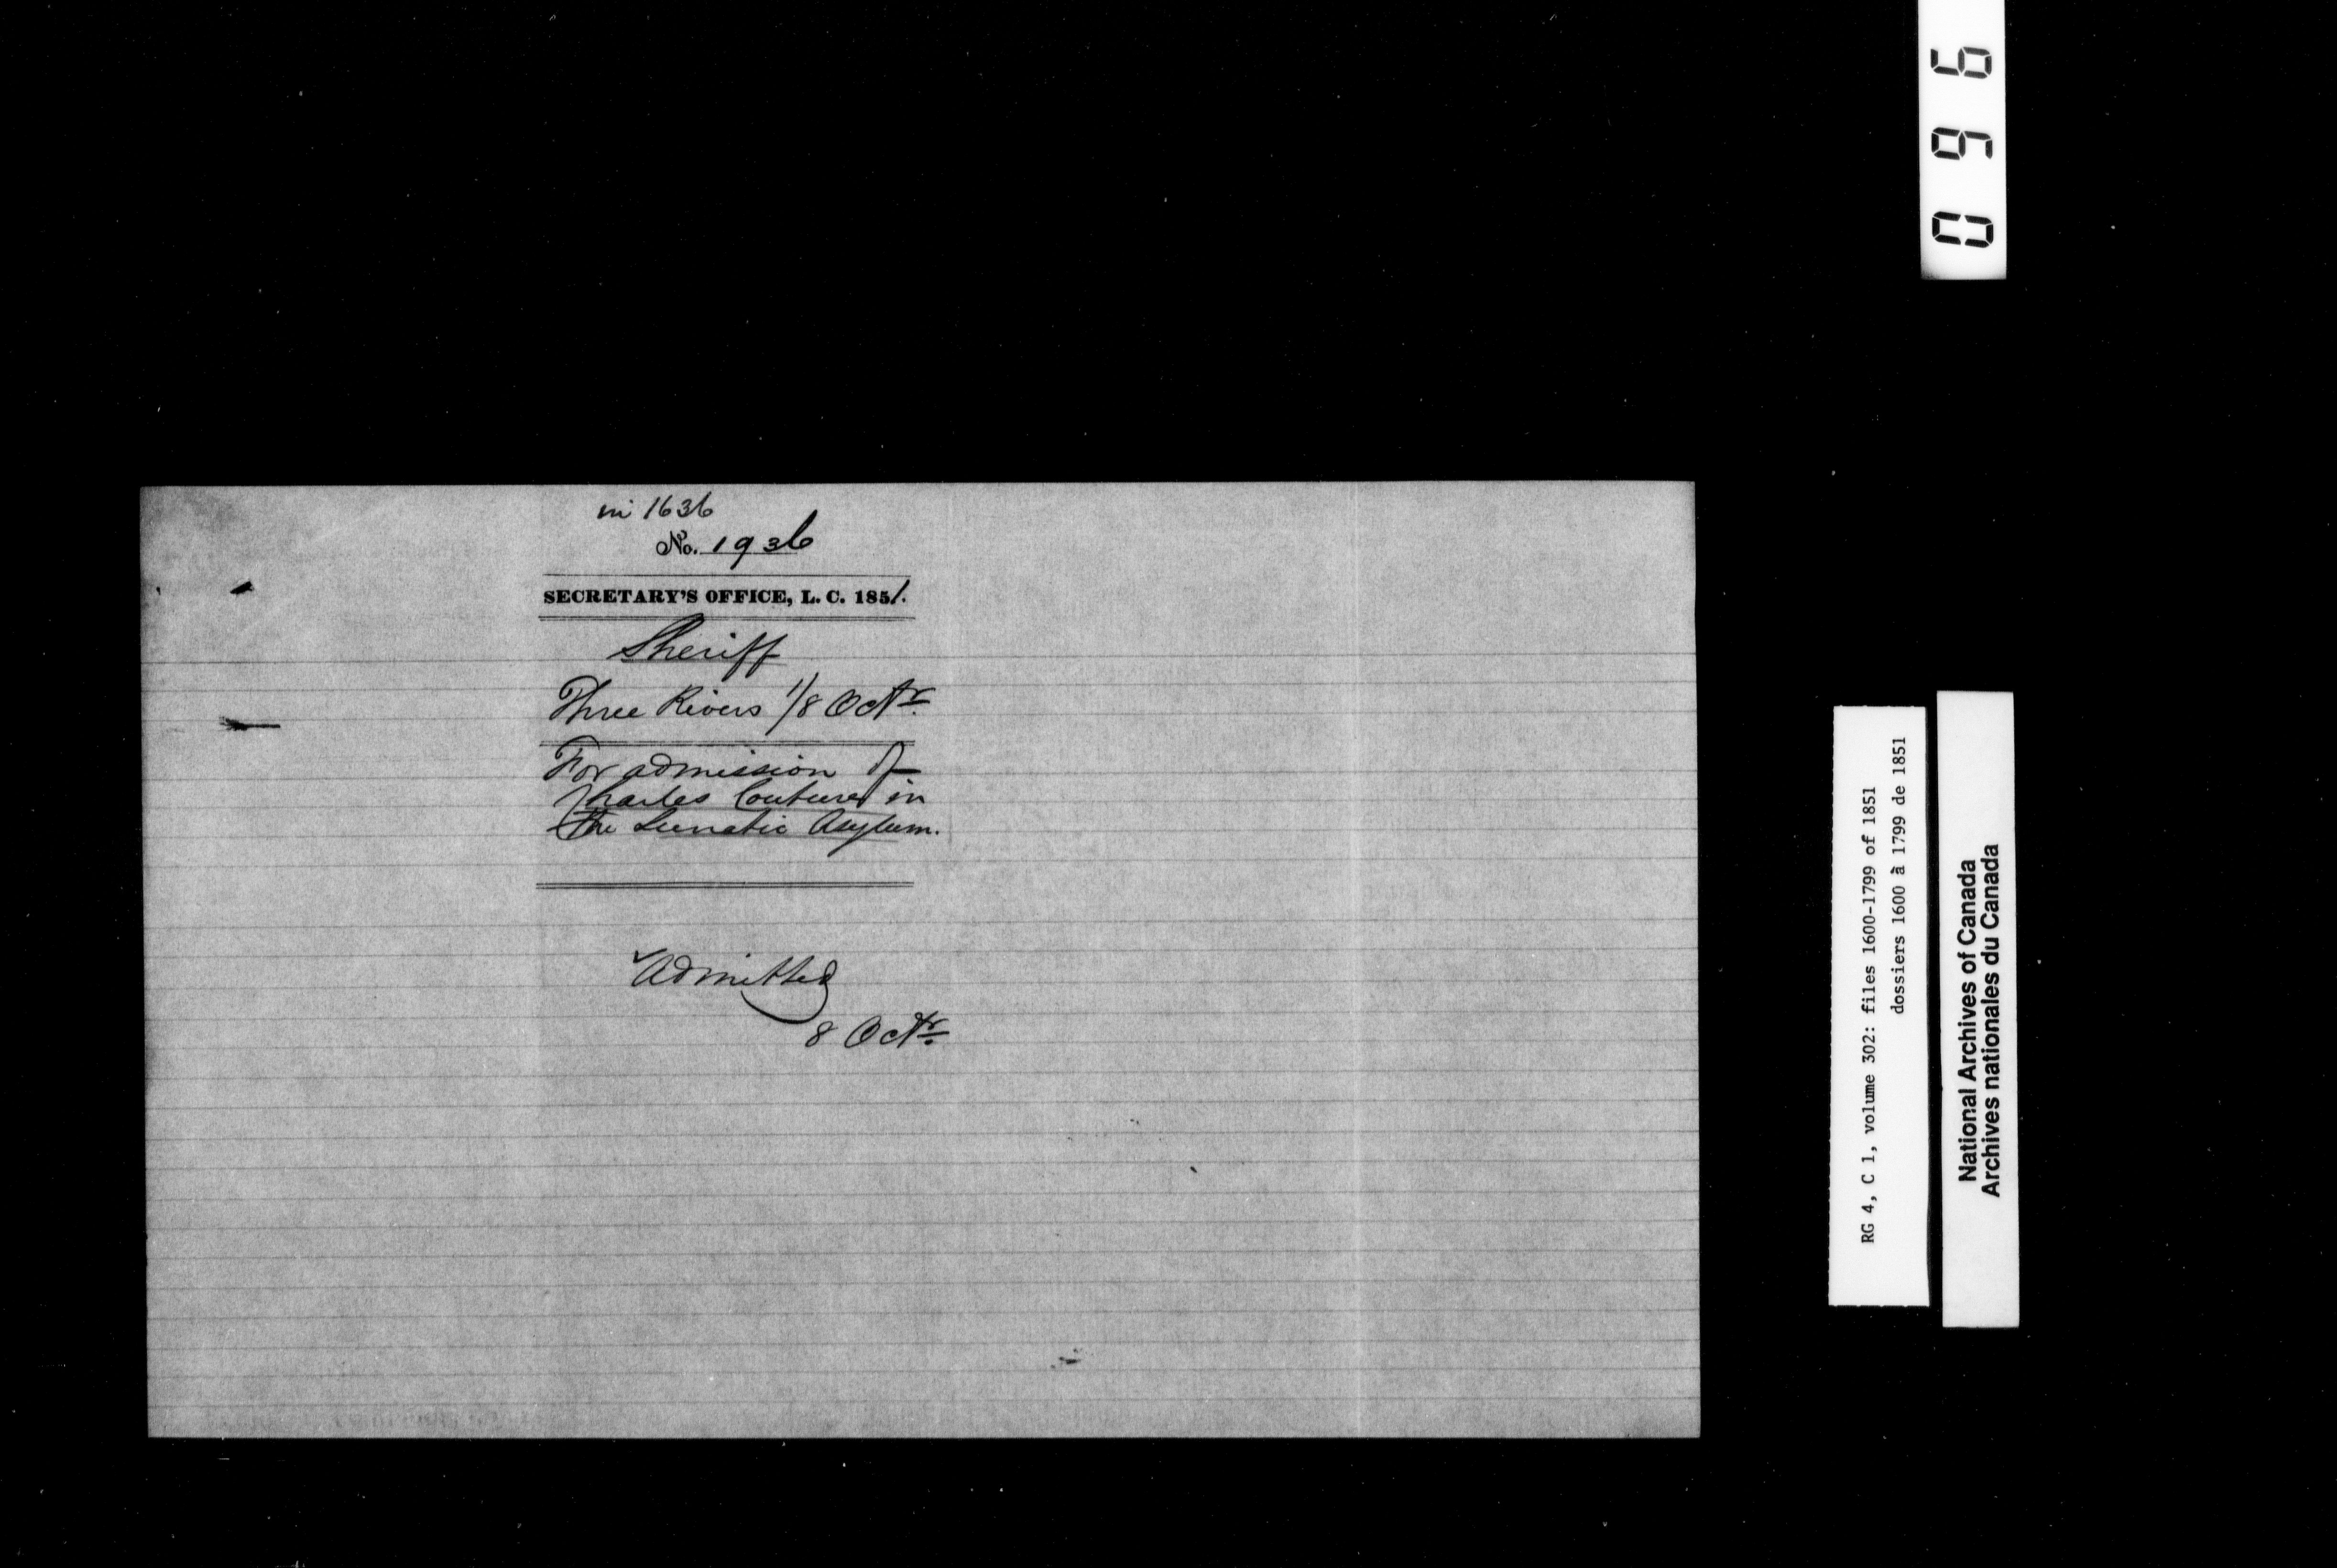 in 1636
No. 1936
SECRETARY'S OFFICE, L. C. 1851.
Sheriff
Three Rivers 1/8 Octr.
For admission of
Charles Couture in
the Lunatic Asylum.
Admitted
8 Octr.
096
RG 4, C 1, volume 302: files 1600-1799 of 1851
dossiers 1600 à 1799 de 1851
National Archives of Canada
Archives nationales du Canada